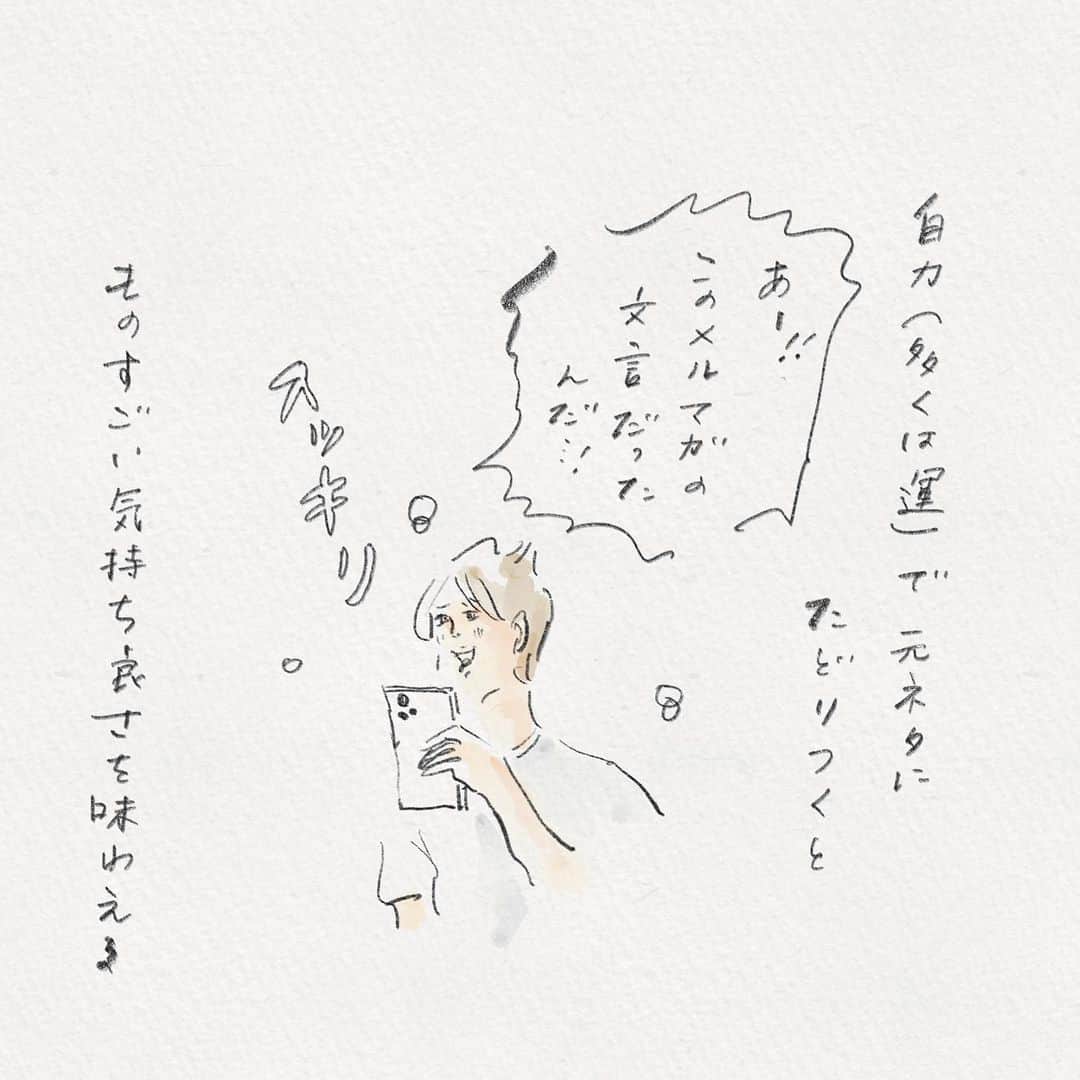 自力(多くは運)で元ネタに
たどりつくと
あー!!
このメルマガの
文言だった
んだ…!
スッキリ
ものすごい気持ち良さを味わえる